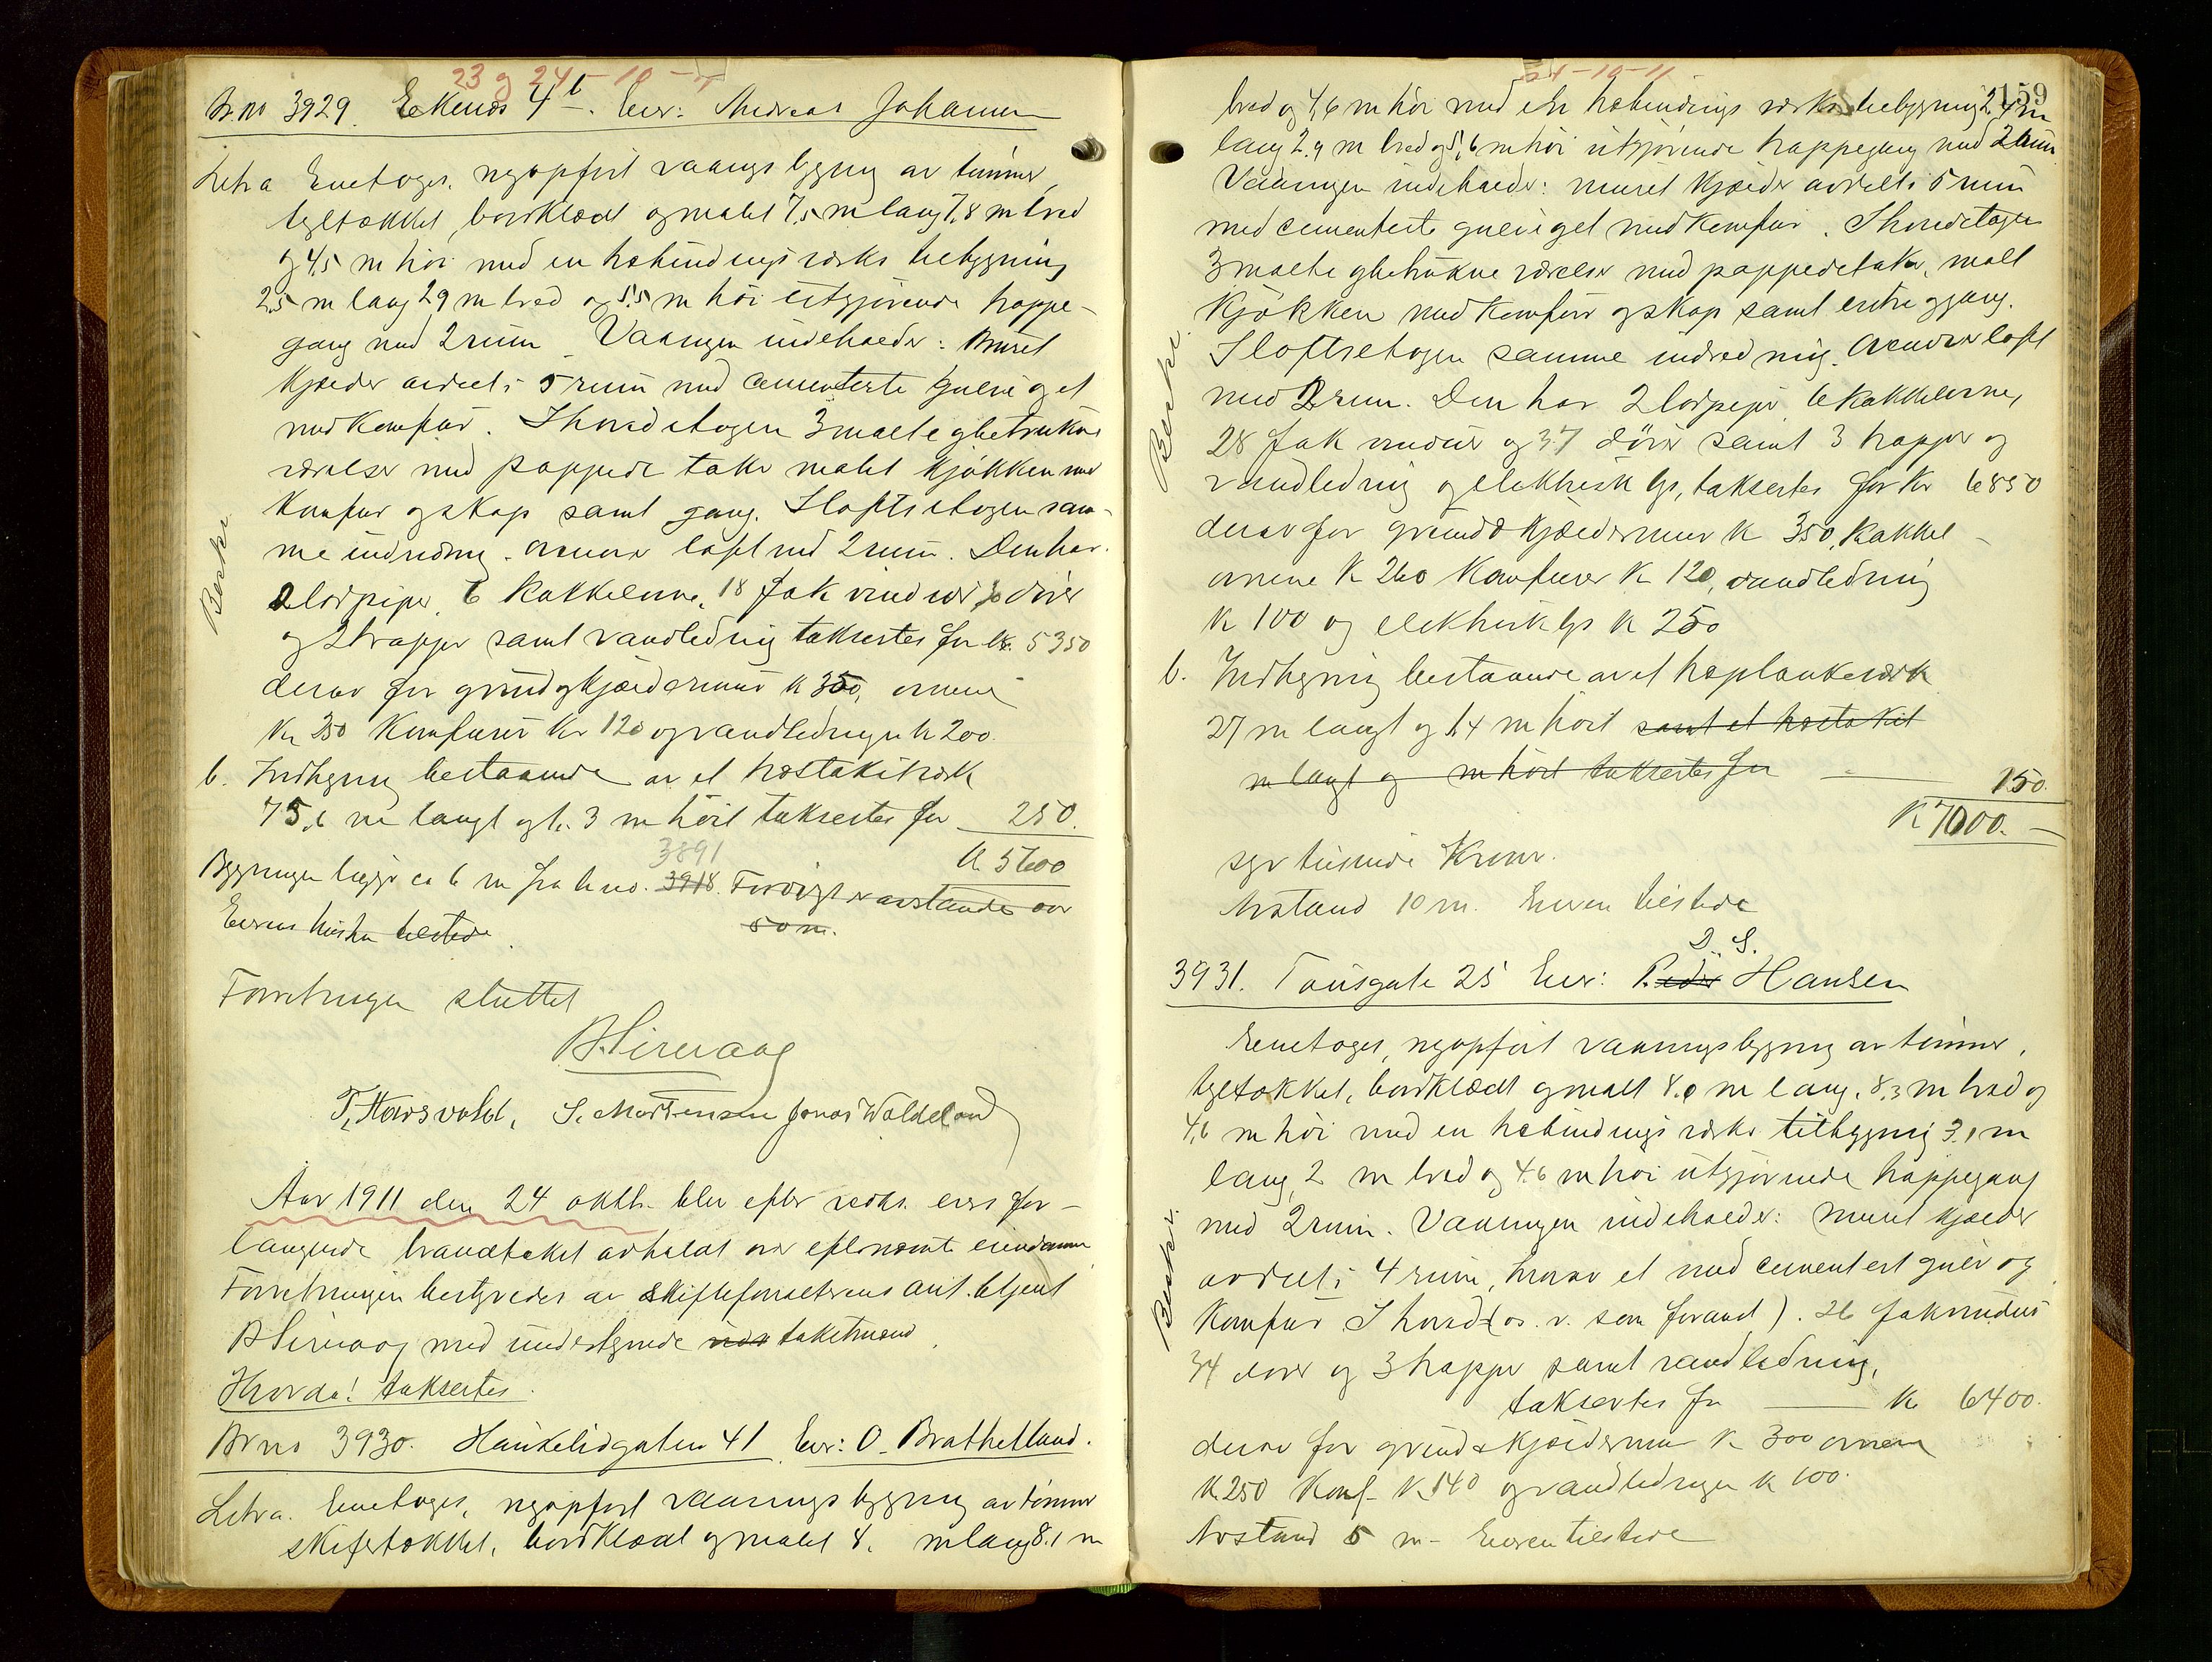 23 og 24 - 10 - 11
Br.no 3929. Ekenæs 4 b. Eier: Andreas Johansen
Litra Enetages, nyopført vaaningsbygning av tømmer,
tegltækket, bordklædt og malet 7,5 m lang 7,8 m bred
og 4,5 m høi med en utbindingsværks tilbygning
2,5 m lang 2,9 m bred og 5,5 m høi utgjørende trappe-
gang med 2 rum. Vaaningen indeholder: Muret
kjælder avdelt i 5 rum med cementerte gulv og et
med komfur. I hovedetagen 3 malte og betrukne
værelser med pappede take malet kjøkken med
komfur og skap samt gang. I loftsetagen sam-
me indredning. Ovenover loft med 2 rum. Den har
2 lodpiper, 6 kakkelovne, 18 fak vinduer, 30 døre
og 2 trapper samt vandledning takseres for kr. 5350
derav for grund og kjældermur kr 350, ovnene
kr 250 komfurer kr 120 og vandledningen kr 200.
b. Indhegning bestaaende av et træstakitværk
75,6 m langt og 1.3 m høit takseres for 250.
K 5600
3891
Bygningen ligger ca 6 m fra br.no. 3918. Forøvrigt er avstande over
50 m.
Eierens hustru tilstede.
Forretningen sluttet
B. Sirevaag
T. Housvold, S. Mortensen Jonas Waldeland
Aar 1911 den 24 oktbr. blev efter vedk. eiers for-
langende brandtakst avholdt over efternævnte eiendomme
Forretningen bestyredes av skifteforvalterens aut. betjent
B Sirevaag med undertegnede takstmænd.
Hvorda! takseres
Br no 3930. Haukeligaten 41 Eier: O. Brathetland.
Litra. Enetages, nyopført vaaningsbygning av tømmer
skifertækket, bordklædt og malet 8. m lang 8.1 m
Beskr.
24-10-11
159
bred og 4,6 m høi med en utbindingsværks tilbygning 2,4 m
lang 2.9 m bred og 5,6 m høi utgjørende trappegang med 2 rum
Vaaningen indeholder: muret kjælder avdelt i 5 rum
med cementerte gulv og et med komfur. I hovedetagen
3 malte og betrukne værelser med pappede take, malt
kjøkken med komfur og skap samt entre og gang.
I loftsetagen samme indredning. Ovenover loft
med 2 rum. Den har 2 lodpiper, 6 kakkelovne,
28 fak vinduer og 37 døre samt 3 trapper og
vandledning og elektrisk lys, takseres for kr 6850
derav for grund & kjældermur kr 350, kakkel-
ovnene kr 260 komfurer kr 120, vandledning
kr 100 og elektrisk lys kr 250
b. Indhegning bestaaende av et træplankeværk
27 m langt og 1,4 m høit samt et træstakit
m langt og m høit takseres for 150.
K 7000. -
syv tusinde Kroner.
Avstand 10 m. Eieren tilstede
Beskr.
D. S.
3931. Tousgate 25 Eier: Peder Hansen
Enetages, nyopført vaaningsbygning av tømmer,
tegltækket, bordklædt og malt 8.0 m lang, 8.3 m bred og
4,6 m høi med en utbindingsværks tilbygning 3.1 m
lang, 2 m bred og 4.6 m høi utgjørende trappegang
med 2 rum. Vaaningen indeholder: muret kjælder
avdelt i 4 rum, hvorav et med cementert gulv og
komfur. I hoved (o. s. v. som forannt). 26 fak vinduer
34 døre og 3 trapper samt vandledning,
takseres for kr 6400.
derav for grund & kjældermur kr 300 ovnene
kr 250 Komf. kr 140 og vandledningen kr 100.
Avstand 5 m - Eieren tilstede
Beskr.